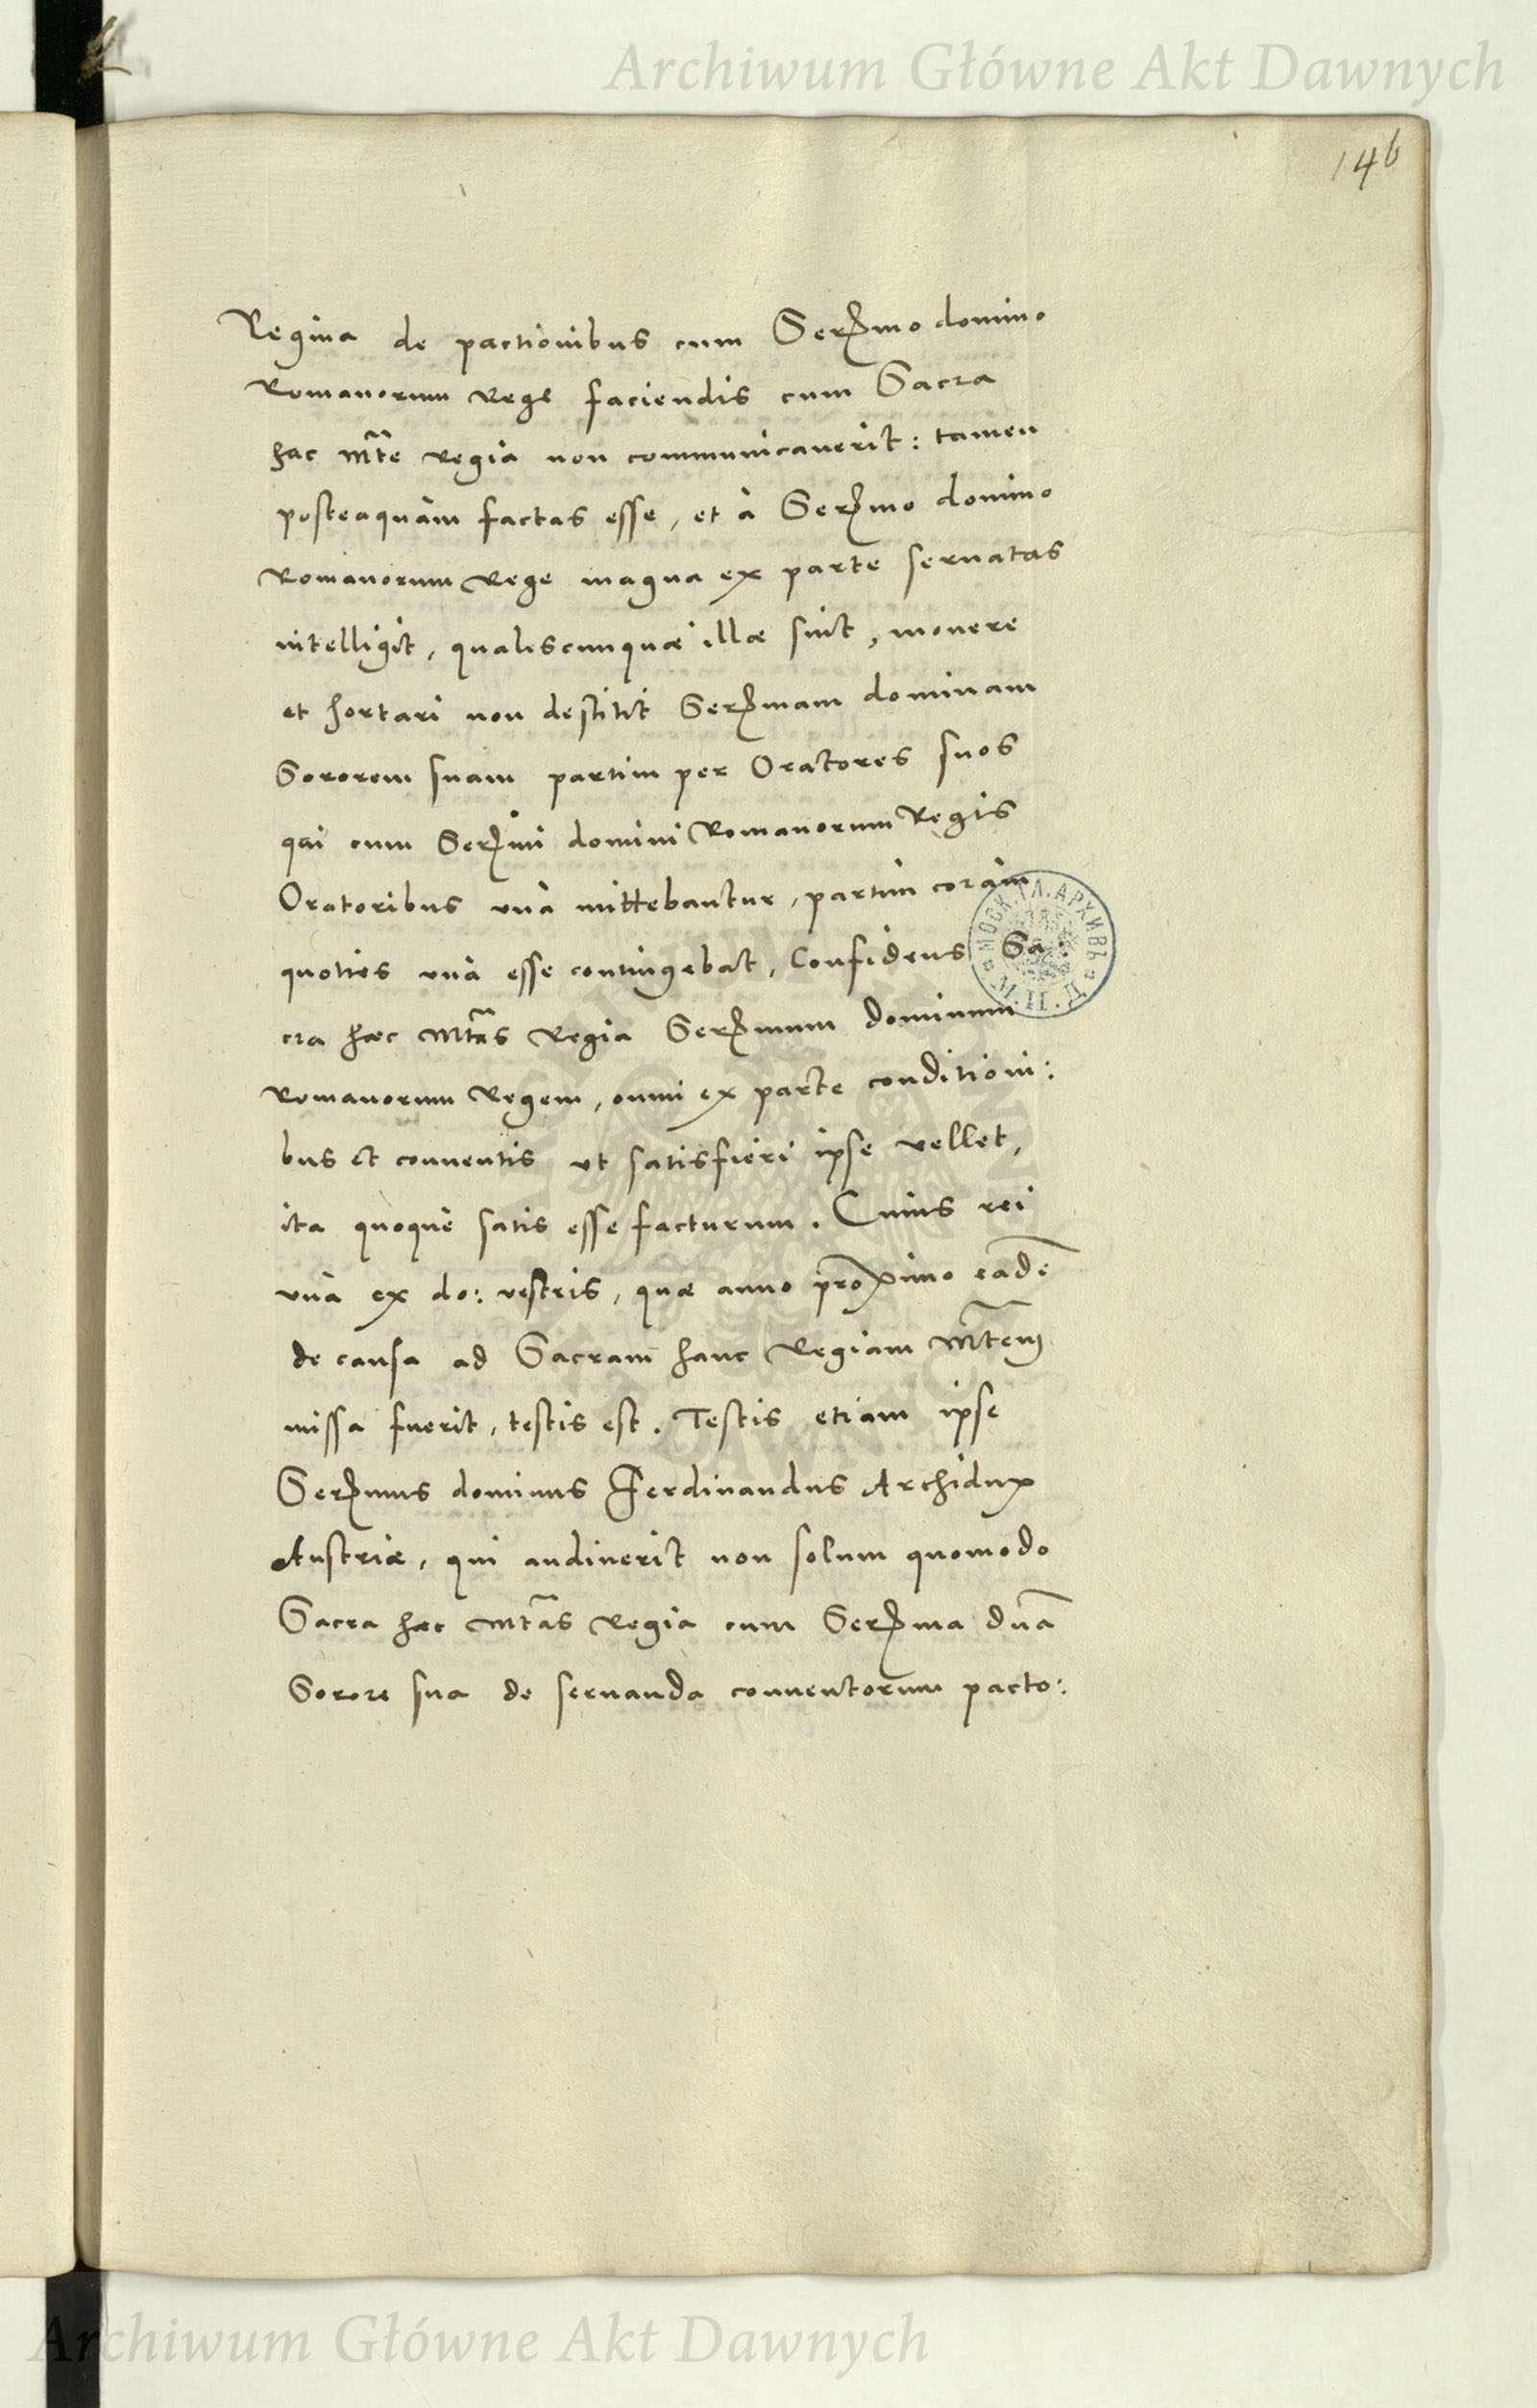 Archiwum Główne Akt Dawnych
146
Regina de pactionibus cum Serᵐᵒ domino
Romanorum Rege faciendis cum Sacra
hac Mte Regia non communicauerit: tamen
posteaquàm factas esse, et à Serᵐᵒ domino
Romanorum Rege magna ex parte seruatas
intelligit, qualescunquæ illæ sint, monere
et hortari non destitit Serᵐam dominam
Sororem suam partim per Oratores suos
qui cum Serᵐi domini Romanorum Regis
Oratoribus vnà mittebantur, partim coràm
quoties vnà esse contingebat, Confidens Sa:
cra hæc Mtas Regia Serᵐum dominum
Romanorum Regem, omni ex parte conditioni:
bus et conuentis vt satisfieri ipse vellet,
ita quoquè satis esse facturum. Cuius rei
vna ex do: vestris, quæ anno proximo eadē
de causa ad Sacram hanc Regiam Mtem
missa fuerit, testis est. Testis etiam ipse
Serᵐus dominus Ferdinandus Archidux
Austriæ, qui audiuerit non solum quomodo
Sacra hæc Mtas Regia cum Serᵐa dna
Sorore sua de seruanda conuentorum pacto:
МОСК. ГЛ. АРХИВЪ
Ц. П. М.
Archiwum Główne Akt Dawnych